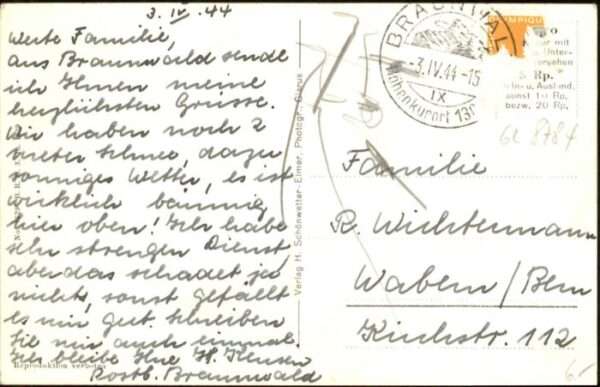 3. IV. 44
Werte Familie,
aus Braunwald sende
ich Ihnen meine
herzlichsten Grüsse.
Wir haben noch 2
meter Schnee, dazu
sonniges Wetter, es ist
wirklich baumig
hier oben! Ich habe
sehr strengen Dienst,
aber das schadet ja
nichts, sonst gefällt
es mir gut. Schreiben
Sie mir auch einmal
Ich bleibe Ihre H.
Postb. Braunwald
Reproduktion verboten
Verlag H. Schönwetter-Elmer, Photogr. Glarus
BRAUNWALD
-3.IV.44-15
IX
Höhenkurort 130
OLYMPIQU
mit
Unter-
versehen
5 Rp.
Ausland,
sonst 10 Rp.
bezw. 20 Rp.
Gl 8784
Familie
R. Wichtermann
Wabern / Bern
Kirchstr. 112
6.-